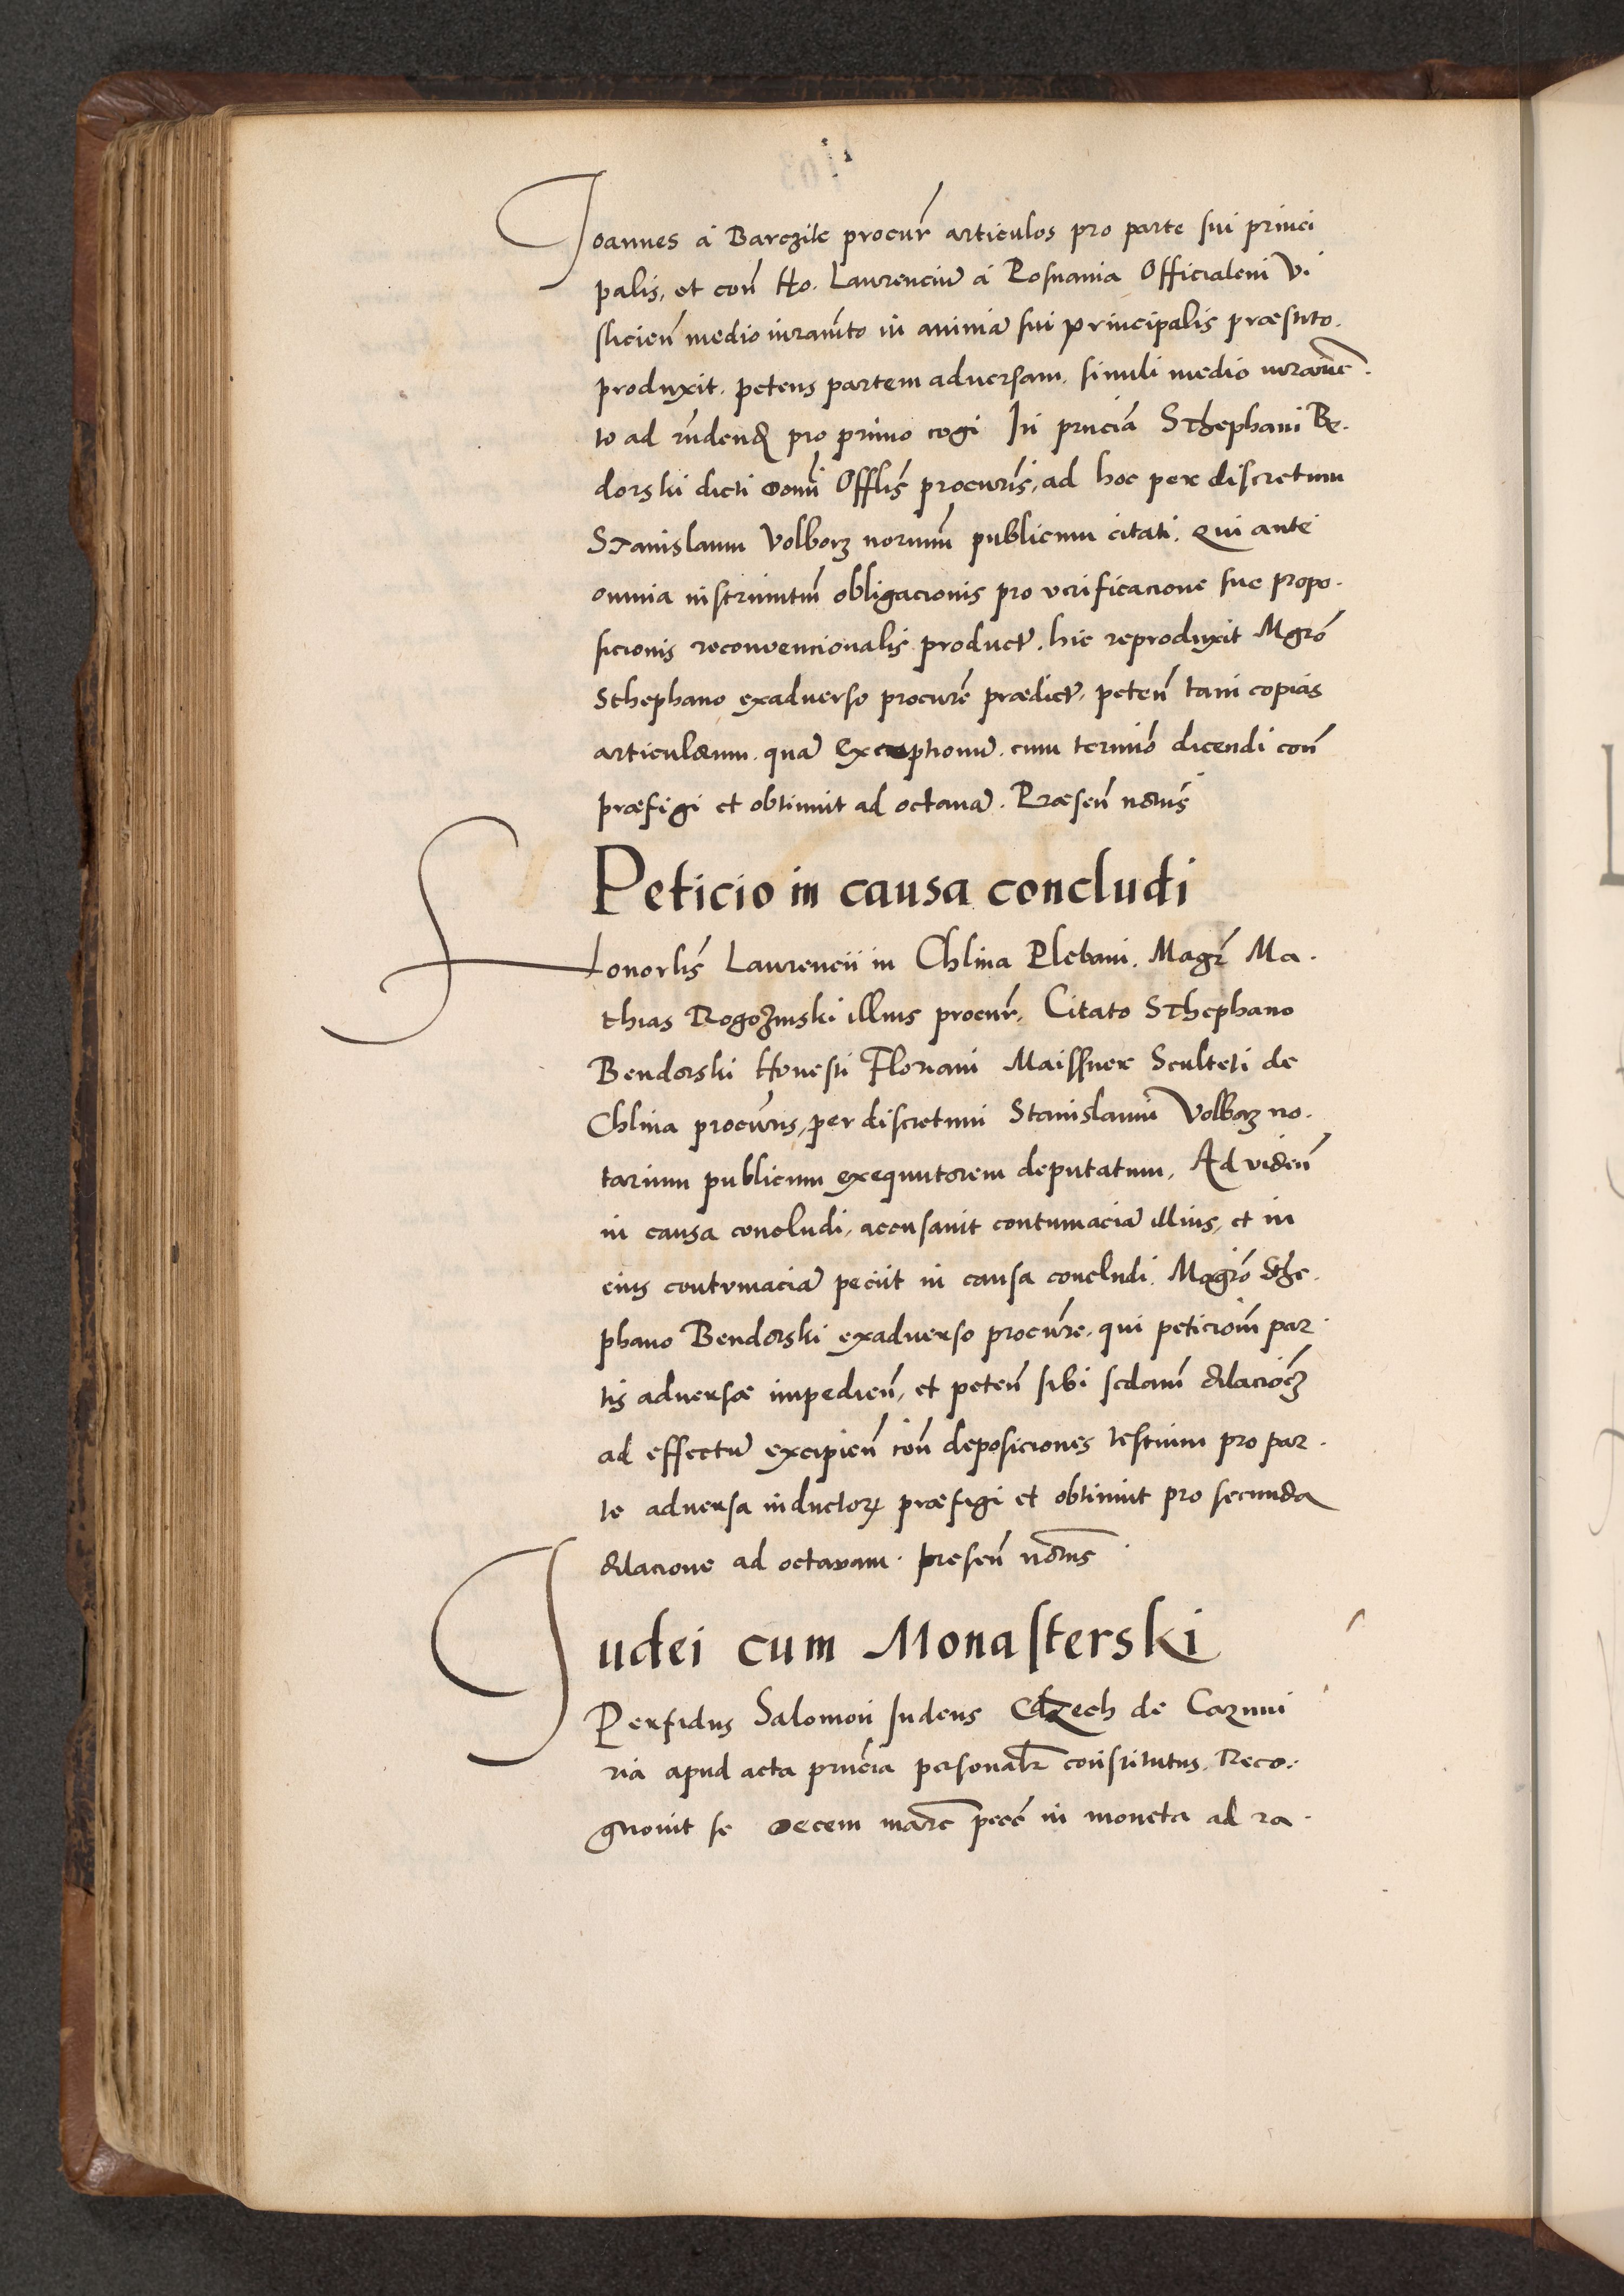 Joannes á Barczik procur̃ articulos pro parte sui princi
palis, et con̄ Ho. Laurenciū á Posnania Officialem Vi
slicien̄ medio iuramto in animā sui principalis præstito.
produxit. petens partem adversam. simili medio iuramē.
to ad rñdend pro primo cogi In pñciā Sthephani Be.
dorski dicti domi Offlis procuris, ad hoc per discretum
Stanislaum Volborz norium publicum citati. Qui ante
omnia instrumtm obligacionis pro verificacione sue propo.
sicionis reconvencionalis product. hic reproduxit Mgro
Sthephano exadverso procure prædict, peten̄ tam copias
articulorum. quā Exceptionū. cum termio dicendi con̄
præfigi et obtinuit ad octauā. Præsen̄ notus
Peticio in causa concludi
Honorlis Laurencii in Chlina Plebani. Magr Ma.
thias Rogozinski illius procur, Citato Sthephano
Bendorski Honesti Floriani Maissner Sculteti de
Chlina procuris, per discretum Stanislaum Volborz no.
tarium publicum exequutorem deputatum, Ad viden̄
in causa concludi, accusauit contumaciā illius, et in
eius contumaciā peciit in causa concludi. Magro Sthe.
phano Bendorski exadverso procure. qui peticiom par.
tis adversæ impedien̄, et peten̄ sibi scdam dilacioez
ad effectū excipien̄ con̄ deposiciones testium pro par.
te adversa inductorꝝ præfigi et obtinuit pro secunda
dilacione ad octavam. presen̄ notus
Judei cum Monasterski
Perfidus Salomon Judeus Czech de Cazimi
ria apud acta pñcia personalr constitutus. Reco.
gnouit se decem marc pecc in moneta ad ra.